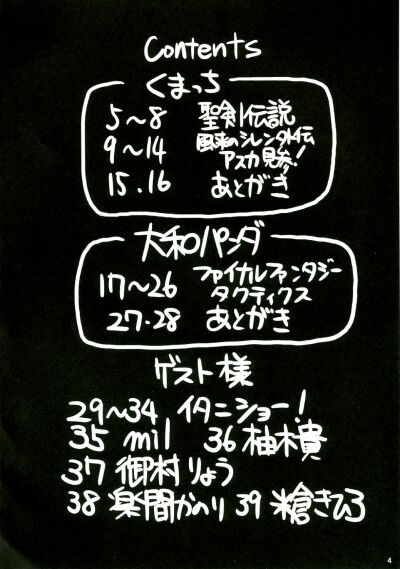 Contents
くまっち
5～8 聖剣伝説
9～14 風来のシレン外伝
アスカ見参!
15.16 あとがき
大和パンダ
17～26 ファイナルファンタジー
タクティクス
27・28 あとがき
ゲスト様
29～34 イタニショー!
35 mil 36 柚木貴
37 御村りょう
38 楽間かのり 39 きひろ
4